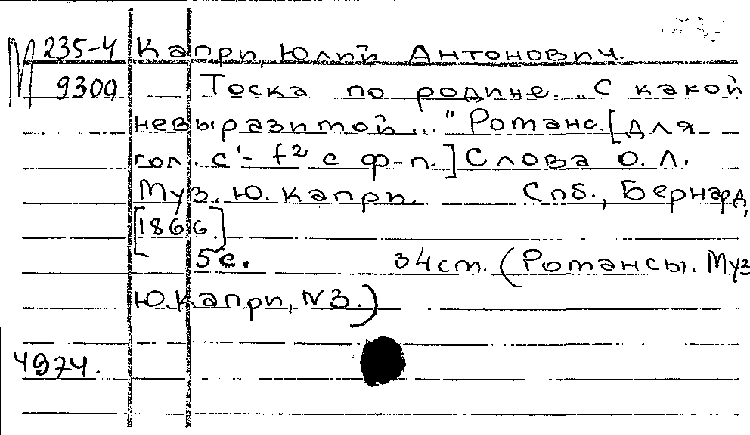 М 235-4 Капри, Юлий Антонович.
9300 Тоска по родине. „С какой
невыразимой..." Романс. [Для
гол. c¹- f² с ф-п.] Слова О. Л.
Муз. Ю. Капри. Спб., Бернард,
[1866.]
5с. 34см. (Романсы. Муз
Ю. Капри, N3.)
4974.